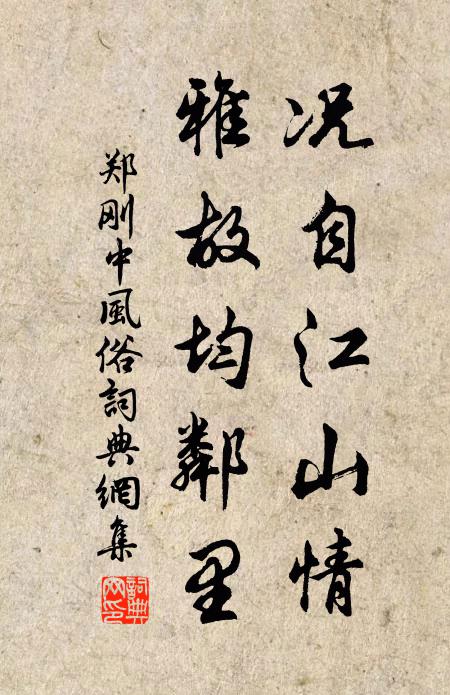 况自江山情
雅故均鄰里
郑刚中風俗詞典網集
詞典
网印